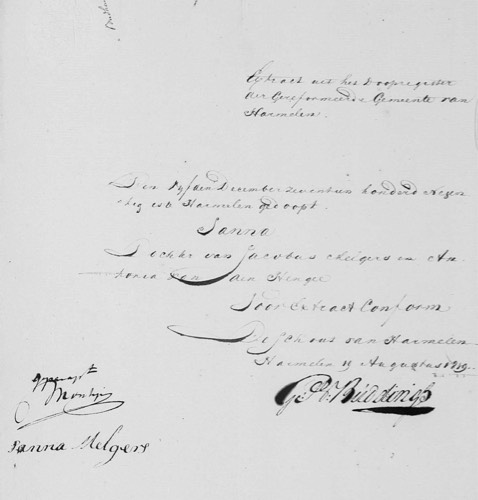 Extract uit het Doopregister
der Gereformeerde Gemeente van
Harmelen.
Den Vyfden December zeventien honderd negen
tig is te Harmelen gedoopt.
Janna
Dochter van Jacobus Melgers en An-
tonia van
Voor Extract Conform
De Schout van Harmelen
Harmelen 19 Augustus 1819.
Janna Melgers